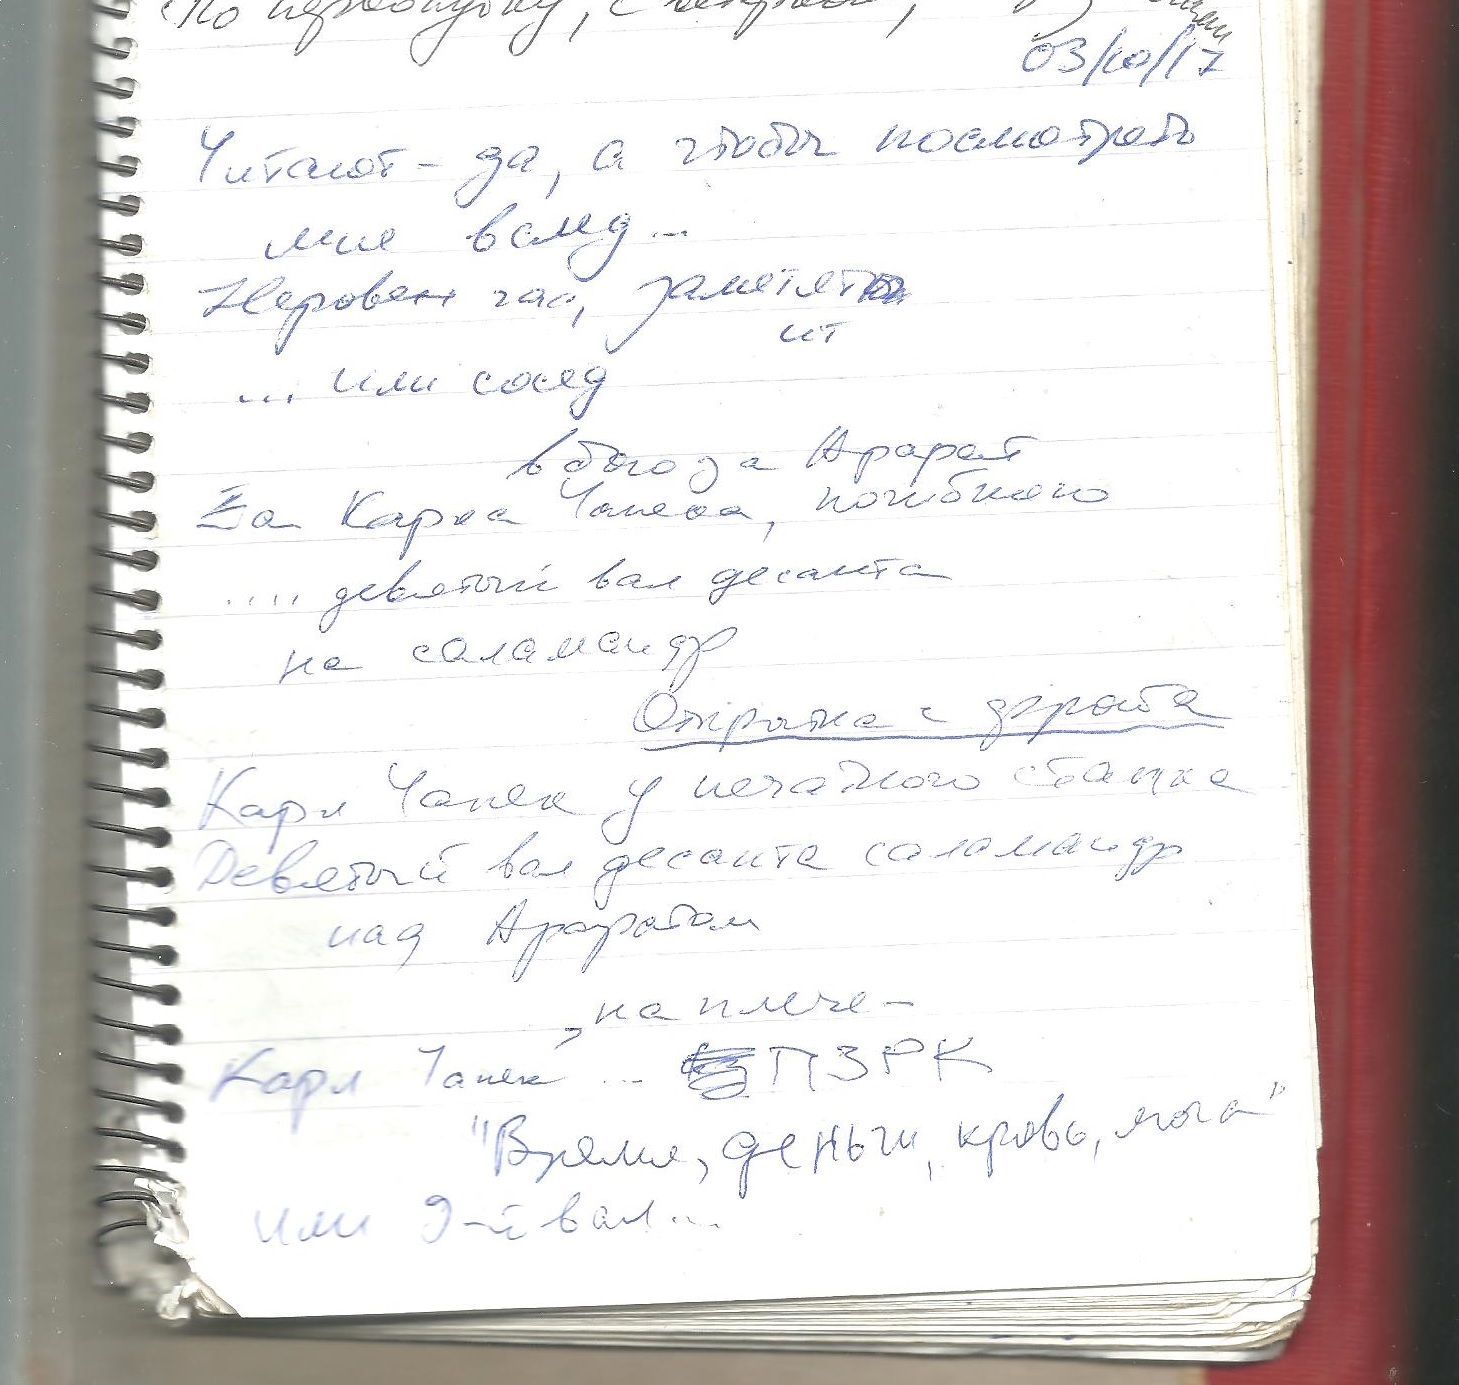 По первопутку, с
03/10/17
Читают - да, а чтобы посмотреть
мне вслед...
Неровен час, заметят
ит
... или сосед
в бою за Арарат
За Карла Чапека, погибшего
.... девятый вал десанта
на саламандр
Открытка с фронта
Карл Чапек у печатного станка
Девятый вал десанта саламандр
над Араратом
, на плече -
Карл Чапек ... ПЗРК
"Время, деньги, кровь, моча"
или 9-й вал...